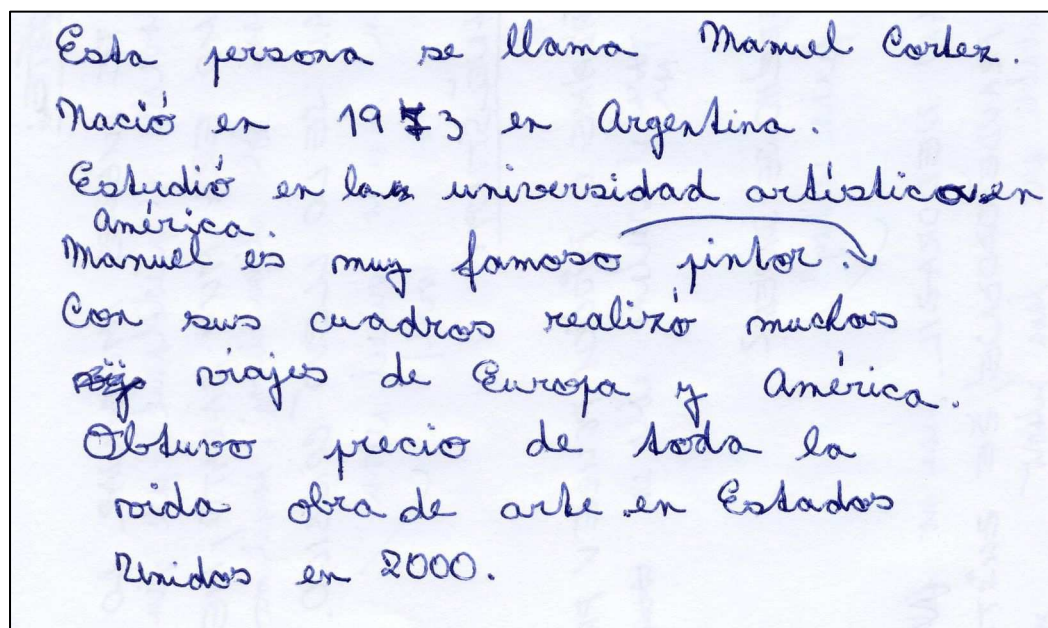 Esta persona se llama Manuel Cortez.
Nació en 1973 en Argentina.
Estudió en la universidad artística en
América.
Manuel es muy famoso pintor.
Con sus cuadros realizó muchas
viajes de Europa y América.
Obtuvo precio de toda la
vida obra de arte en Estados
Unidos en 2000.